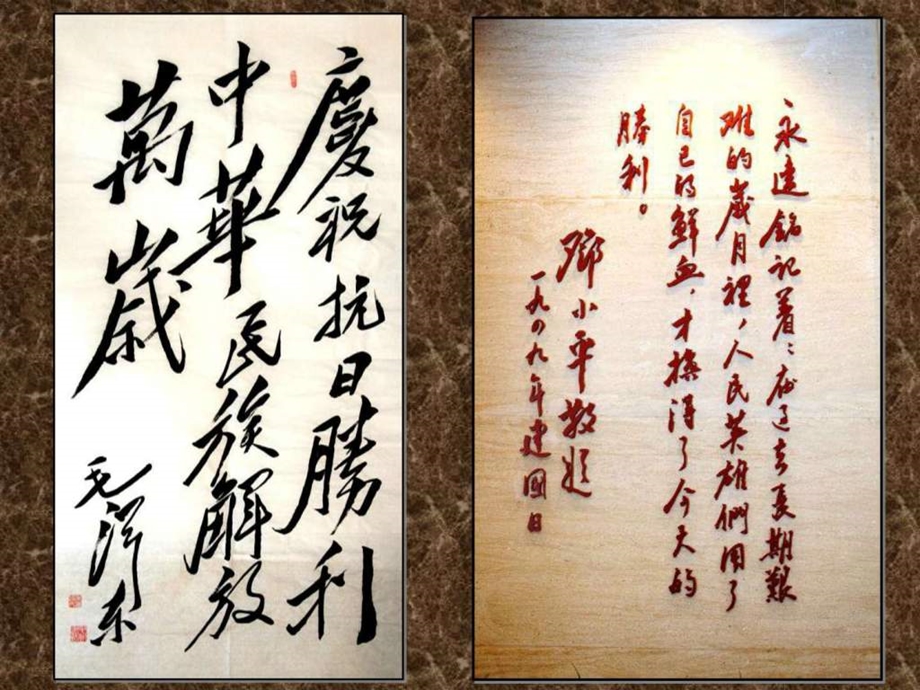 慶祝抗日勝利
中華民族解放
萬歲
毛泽东
永遠銘記着：在过去長期艱
难的歲月裡，人民英雄們用了
自己的鮮血，才換得了今天的
勝利。
鄧小平敬題
一九四九年建國日